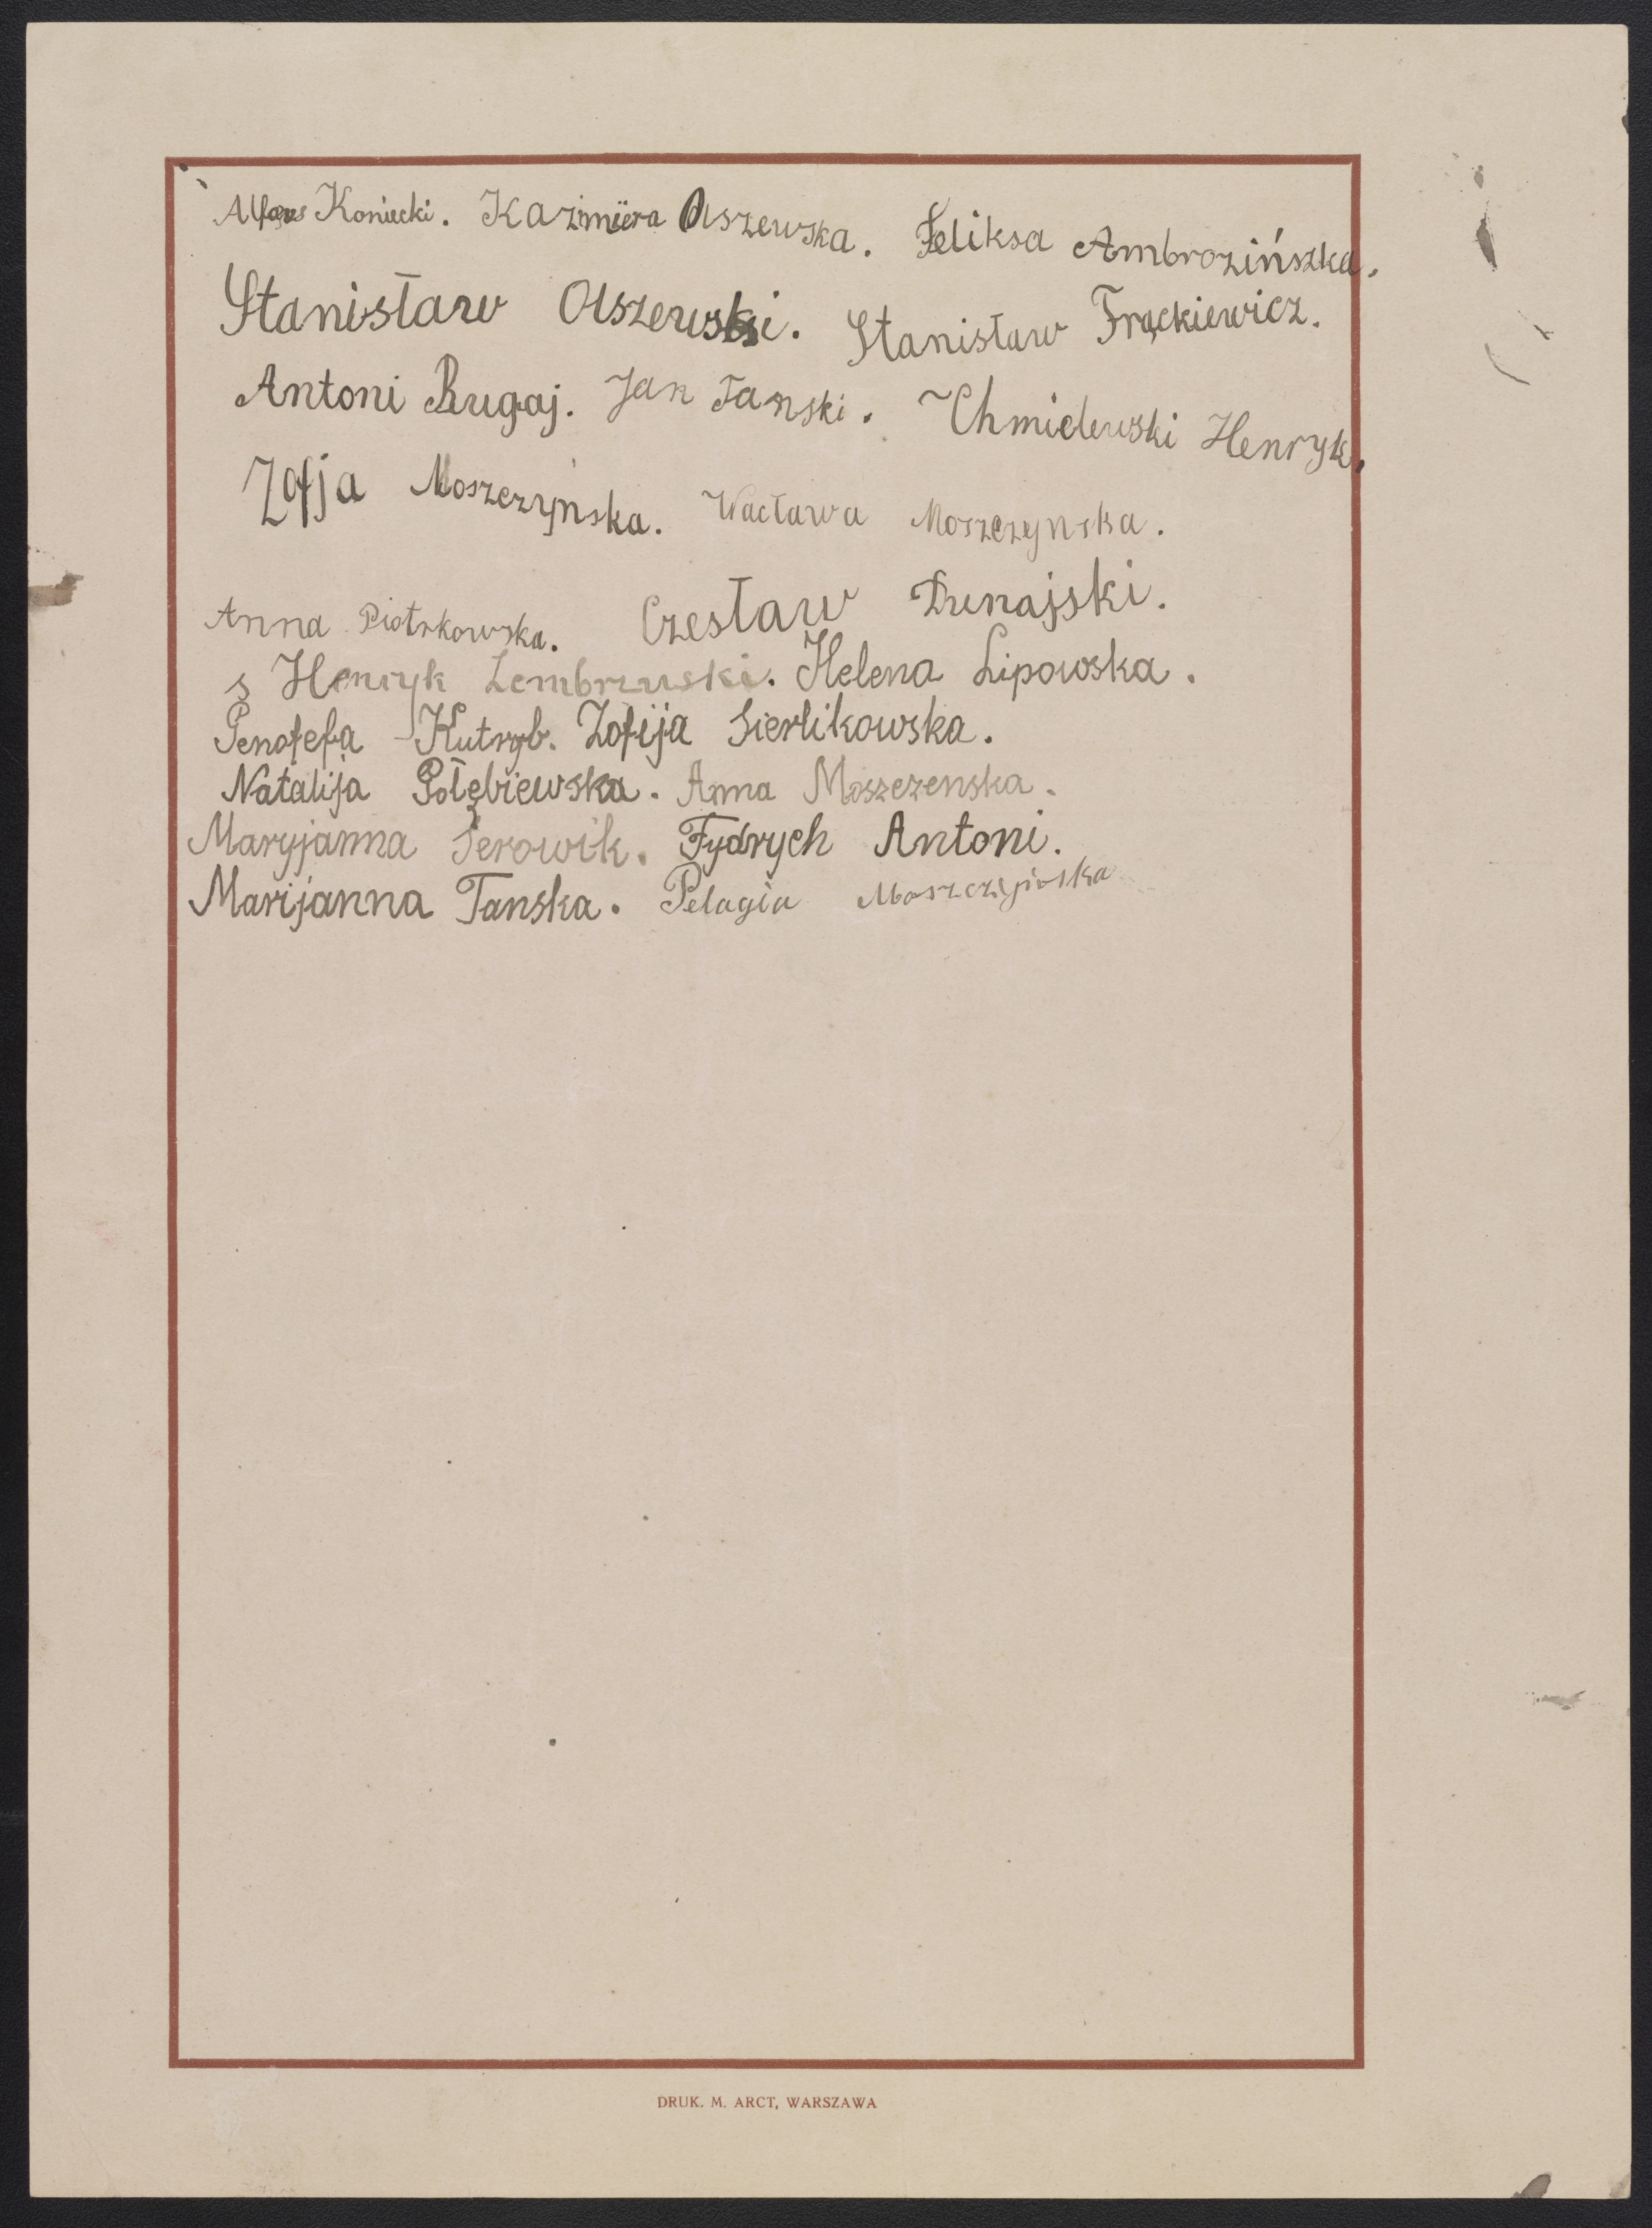 Alfons Koniecki. Kazimiera Olszewska. Feliksa Ambrozińszka.
Stanisław Olszewski. Stanisław Frąckiewicz.
Antoni Rugaj. Jan Tanski. Chmielewski Henryk.
Zofja Moszczynska. Wacława Moszczynska.
Anna Piotrkowska. Czesław Dunajski.
s Henryk Zembrzuski. Helena Lipowska.
Penofefa Kutryb. Zofija Sierlikowska.
Natalija Połębiewska. Anna Moszczenska.
Maryjanna Serowik. Fydrych Antoni.
Marijanna Tanska. Pelagia Moszczynska
DRUK. M. ARCT, WARSZAWA